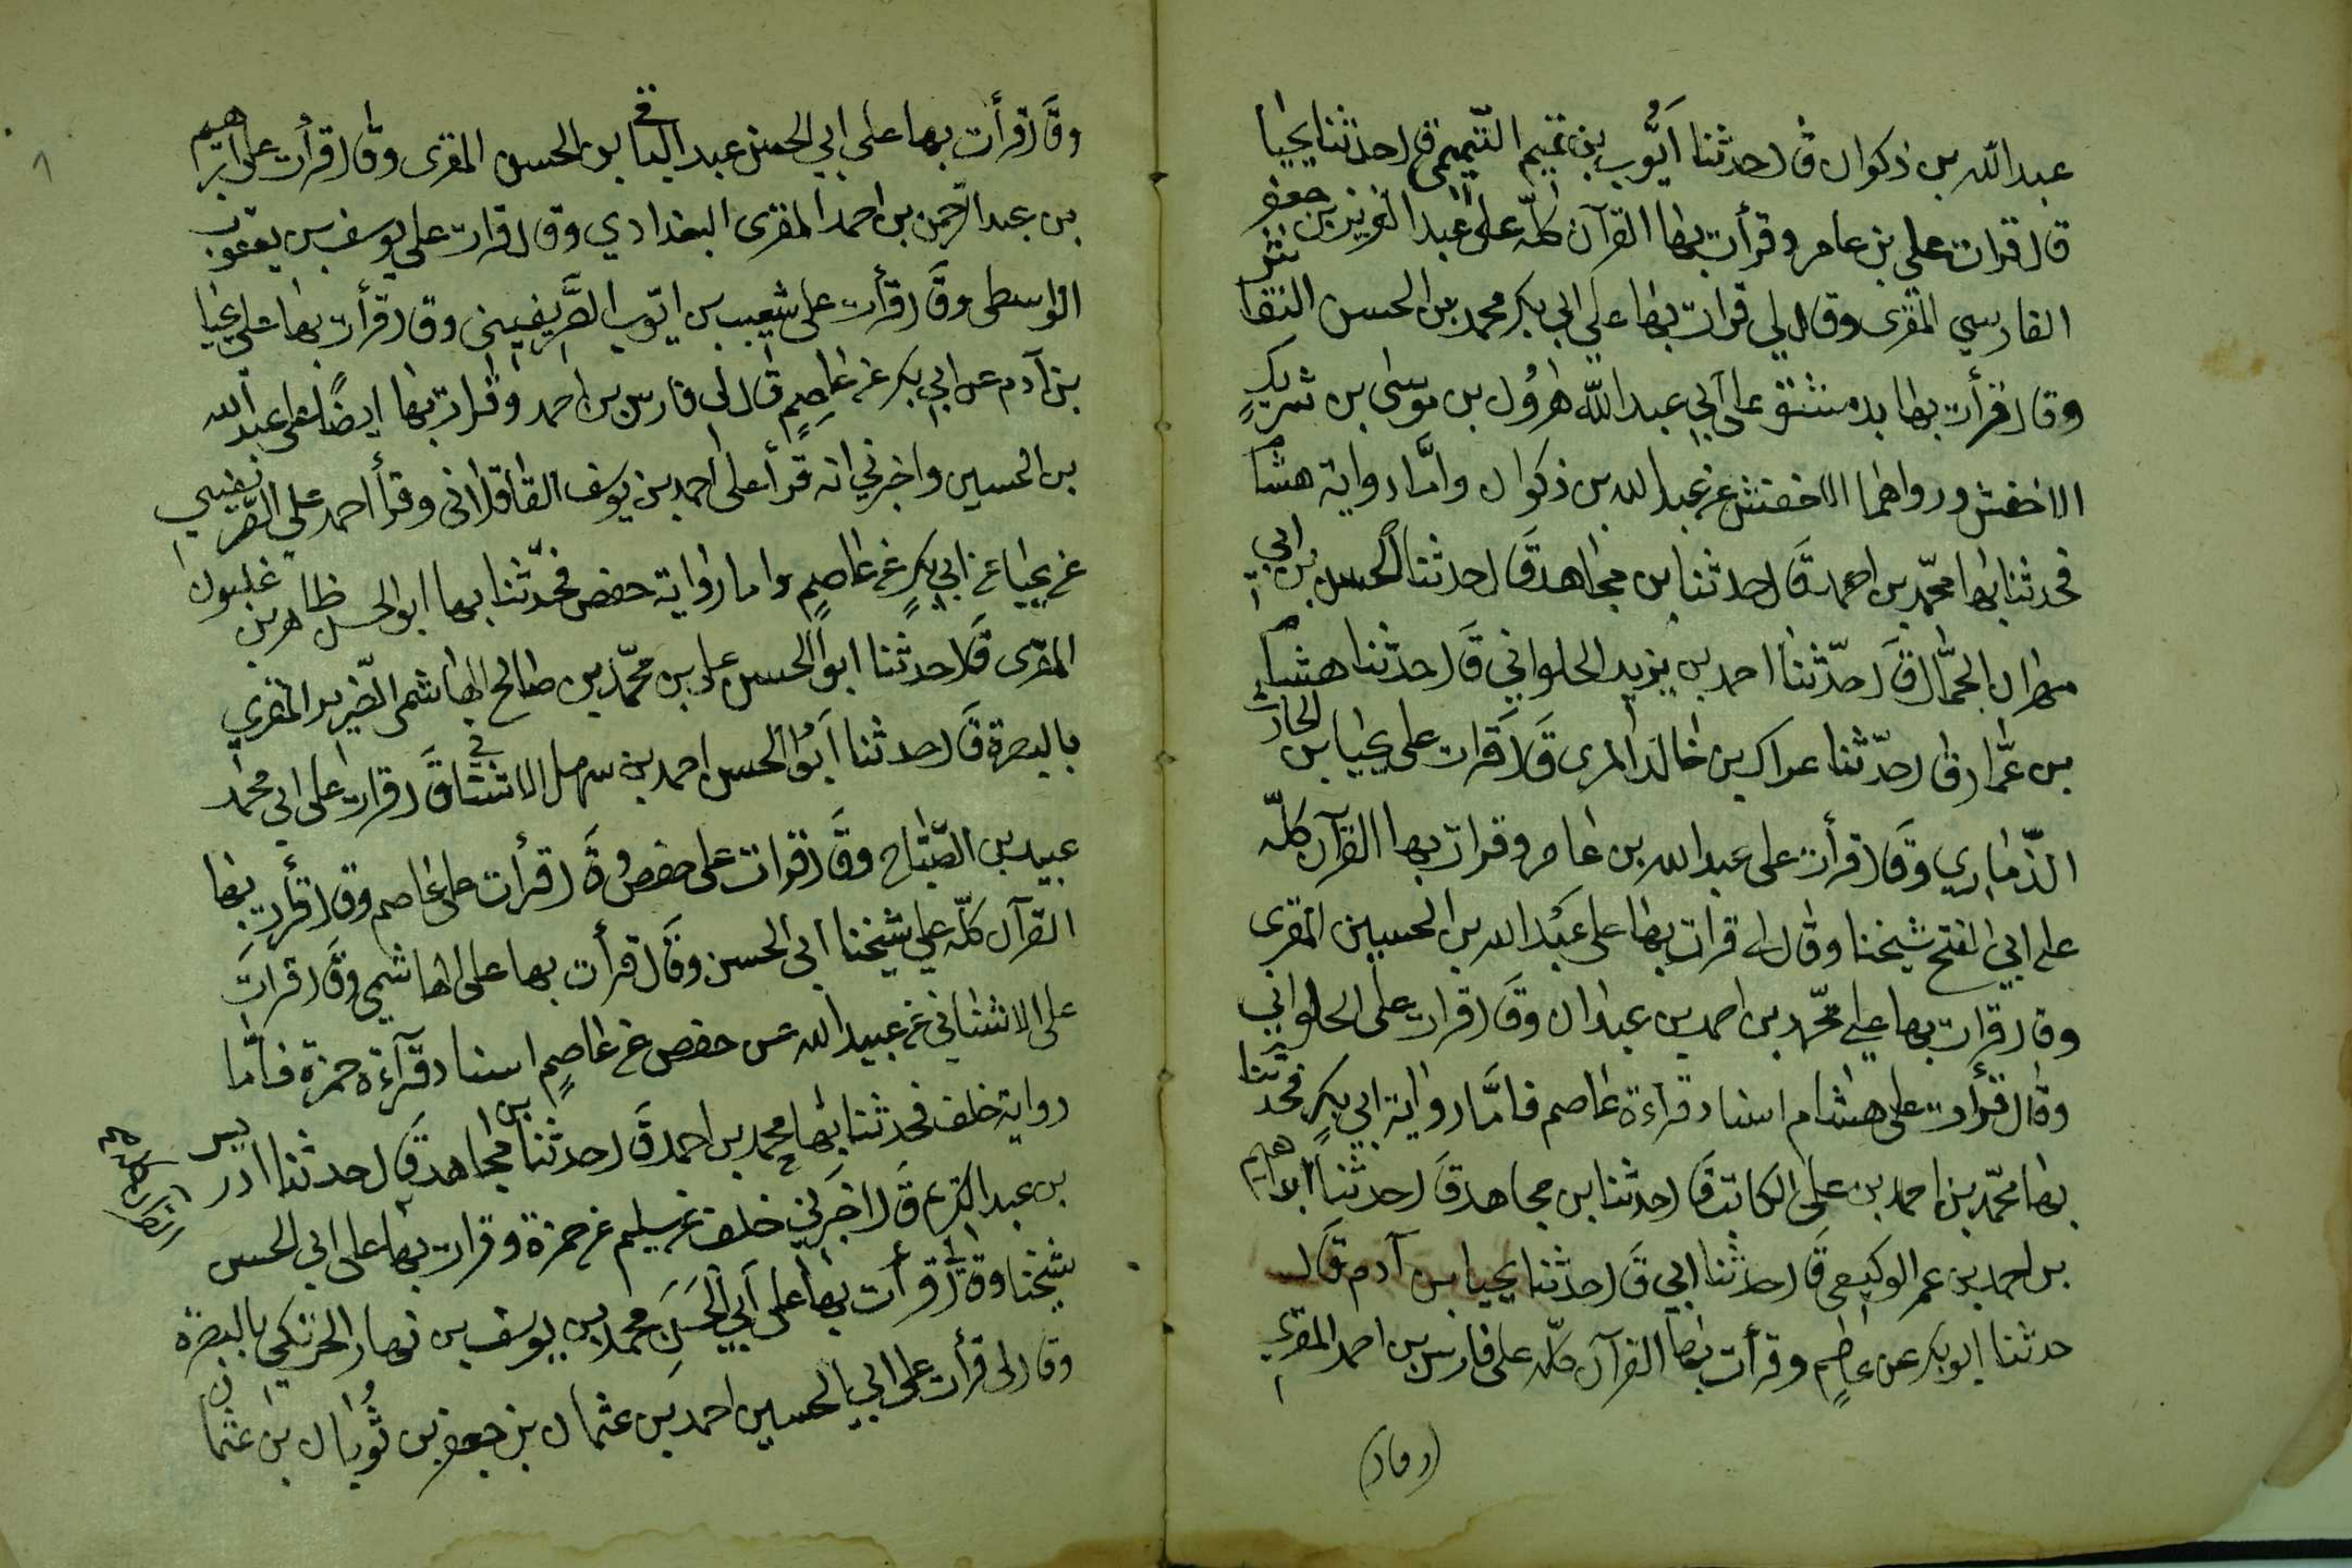 عبد الله بن ذكوان قال حدثنا أيُّوب بن تميم التّميمى قال حدثنا يحيا
قال قرات على بن عامر وقرأت بها القرآن كلّه على عبد العزيز بن جعفر
الفارسي المقرى وقال لي قرات بها على ابي بكر محمد بن الحسن النقاش
وقال قرأت بها بدمشق على ابي عبد الله هرون بن موسى بن شريكٍ
الاخفش ورواها الاخفش عن عبد الله بن ذكوان وامَّا رواية هشام
فحدثنا بها محمّد بن احمد قَال حدثنا بن مجاهد قَال حدثنا الحسن بن ابي
مهران الجمَّال قَال حدّثنا احمد بن يزيد الحلواني قَال حدثنا هشام
بن عمَّار قال حدّثنا عراك بن خالد المرى قَال قرات على يحيا بن الحارث
الذّماري وقَال قرأت على عبد الله بن عامر وقرات بها القرآن كلّه
على ابي الفتح شيخنا وقال لى قرات بها على عبد الله بن الحسين المقرى
وقال قرات بها على محّمد بن احمد بن عبدان وقَال قرات على الحلواني
وقال قرأت على هشام اسناد قراءة عاصم فامَّا رواية ابي بكرٍ فحدثنا
بها محّمد بن احمد بن على الكاتب قَال حدثنا بن مجاهد قَال حدثنا ابراهيم
بن احمد بن عمر الوكيعى قَال حدثنا ابي قَال حدثنا يحيا بن آدم قَال
حدثنا ابو بكر عن عاصمٍ وقرأت بها القرآن كلّه على فارس بن احمد المقرى
(وقال)
وقَال قرأت بها على ابي الحسن عبد الباقى بن الحسن المقرى وقال قرأت على ابراهيم
بن عبد الرّحمن بن احمد المقرى البغدادي وقال قرات على يوسف بن يعقوب
الواسطى وقَال قرأت على شعيب بن ايّوب الصَّريفينى وقال قرأت بها على يحيا
بن آدم عن ابي بكر عن عاصمٍ قال لى فارس بن احمد وقرات بها ايضًا على عبد الله
بن الحسين واخبرني انه قرأ على احمد بن يوسف القافلانى وقرأ احمد على الصّريفينى
عن يحيا عن ابي بكرٍ عن عاصمٍ واما رواية حفص فحّدثنا بها ابو الحسن طاهر بن غلبون
المقرى قَال حدثنا ابو الحسن على بن محّمد بن صالح الهاشمى الضّرير المقرى
بالبصرة قَال حدثنا اَبُو الحسن احمد بن سهل الاشنانى قَال قرات على ابي محمد
عبيد بن الصّباح وقَال قرات على حفص وقَال قرأت على عاصم وقال قرأت بها
القرآن كلّه على شيخنا ابى الحسن وقَال قرأت بها على الهاشمى وقَال قرات
على الاشناني عن عبيد الله عن حفص عن عاصمٍ اسناد قرآءة حمزة فامَّا
رواية خلف فحدثنا بها محمد بن احمد قَال حدثنا بن مجاهد قَال حدثنا ادريس
بن عبد الكريم قَال اخبرني خلف عن سليم عن حمزة وقرات بها على ابى الحسن
شيخنا وقال قرأت بها على اَبي الحسَن محمد بن يوسف بن نهار الحرتكي بالبصرة
وقال لى قرأت على ابي الحسين احمد بن عثمان بن جعفر بن ثُوبان بن عثمان